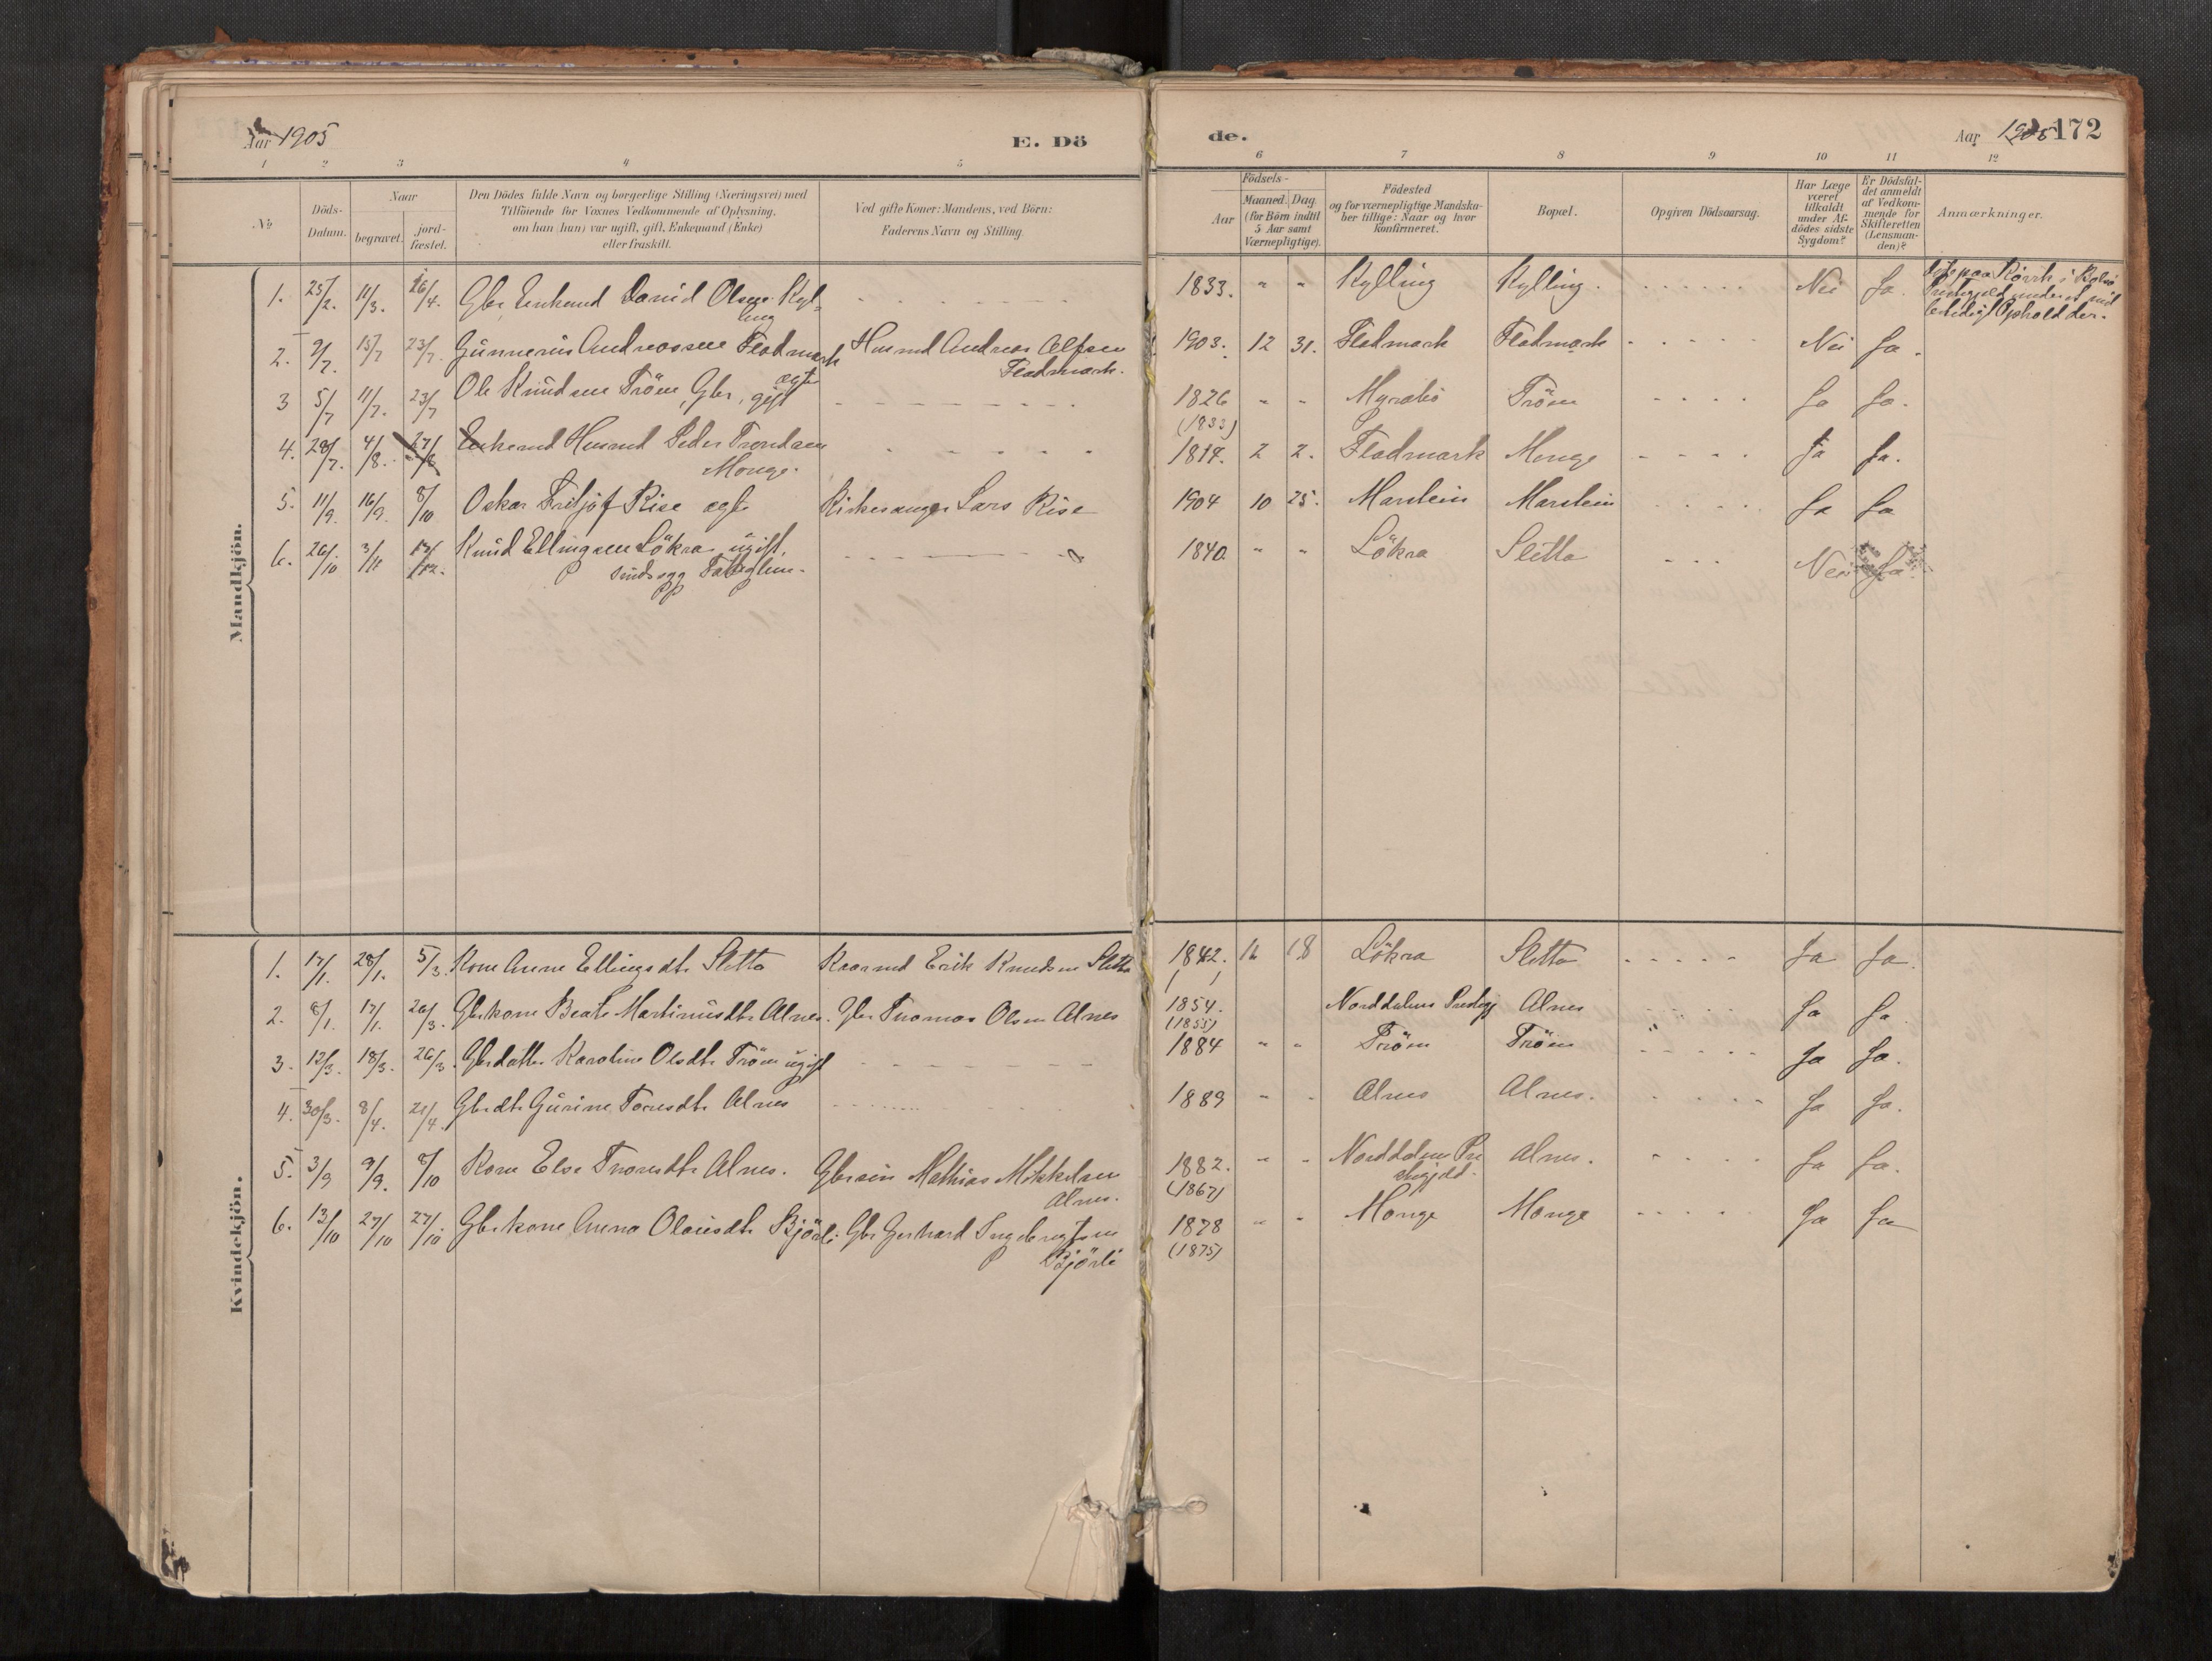 Aar 1905
E. Döde.
Aar 1905 172
1 2 3 4 5 6 7 8 9 10 11 12
No
Döds-Datum.
Naar
begravet.
jord-fæstet.
Den Dödes fulde Navn og borgerlige Stilling (Næringsvei) med
Tilföiende for Voxnes Vedkommende af Oplysning,
om han (hun) var ugift, gift, Enkemand (Enke)
eller fraskilt.
Ved gifte Koner: Mandens, ved Börn:
Faderens Navn og Stilling.
Födsels-
Aar
Maaned. Dag
(for Börn indtil
5 Aar samt
Værnepligtige).
Födested
og for værnepligtige Mandska-
ber tillige: Naar og hvor
konfirmeret.
Bopæl.
Opgiven Dödsaarsag.
Har Læge
været
tilkaldt
under Af-
dödes sidste
Sygdom?
Er Dödsfal-
det anmeldt
af Vedkom-
mende for
Skifteretten
(Lensman-
den)?
Anmærkninger.
Mandkjön.
1. 25/2. 11/3. 26/4. Gbr. Enkemd David Olsen Kyl-
ling
1833. " " Kylling Kylling. Nei Ja.
2. 9/7. 15/7 23/7. Gunnerius Andreassen Fladmark Husmd Andreas Alfsen
ægte Fladmark.
1903. 12 31. Fladmark Fladmark Nei Ja.
3 5/7 11/7. 23/7 Ole Knudsen Tröen, Gbr, gift
1826 " " Tröen Ja Ja.
(1833)
4. 28/7. 4/8. 27/8 Enkemd Husmd Peder Trondsen
Monge.
2 2. Fladmark Monge Ja Ja.
5. 11/9. 16/9. 8/10 Oskar Fritjof Rise ægte Kirkesanger Lars Rise
1904 10 25. Marstein Marstein Ja Ja
6. 26/10 3/11 Knud Ellingsen Lökra, ugift,
1840. " " Lökra Sletta Nei Ja.
Kvindekjön.
1. 17/1. 28/1. 5/3. Kone Anne Ellingsdtr Sletta Kaarmd Erik Knudsen Sletta
1842. 18 Lökra Sletta Ja Ja.
2. 8/1. 17/1. 26/3. Gbrkone Beate Martinusdtr Alnes. Gbr Thomas Olsen Alnes
1854. Norddalens Alnes Ja Ja
(1855)
3. 12/3. 18/3. 26/3. Gbrdatter Karoline Olsdtr Tröen ugift
1884 " " Tröen Tröen Ja Ja.
4. 30/3. 8/4. 21/4. Gbrdtr Gurine Toresdtr Alnes
1889 " " Alnes Alnes. Ja Ja.
5. 3/9 9/9. 8/10 Kone Else Alnes. Gbrsøn Mathias Mikkelsen
Alnes.
1882. " " Norddalens Pre
stegjeld. Alnes. Ja Ja.
(1867)
6. 13/10 27/10 27/10. Gbrkone Anna Olausdtr Björli. Gbr Gerhard Ingebrigtsen
Björli
1878 " " Monge Monge Ja Ja
(1875)